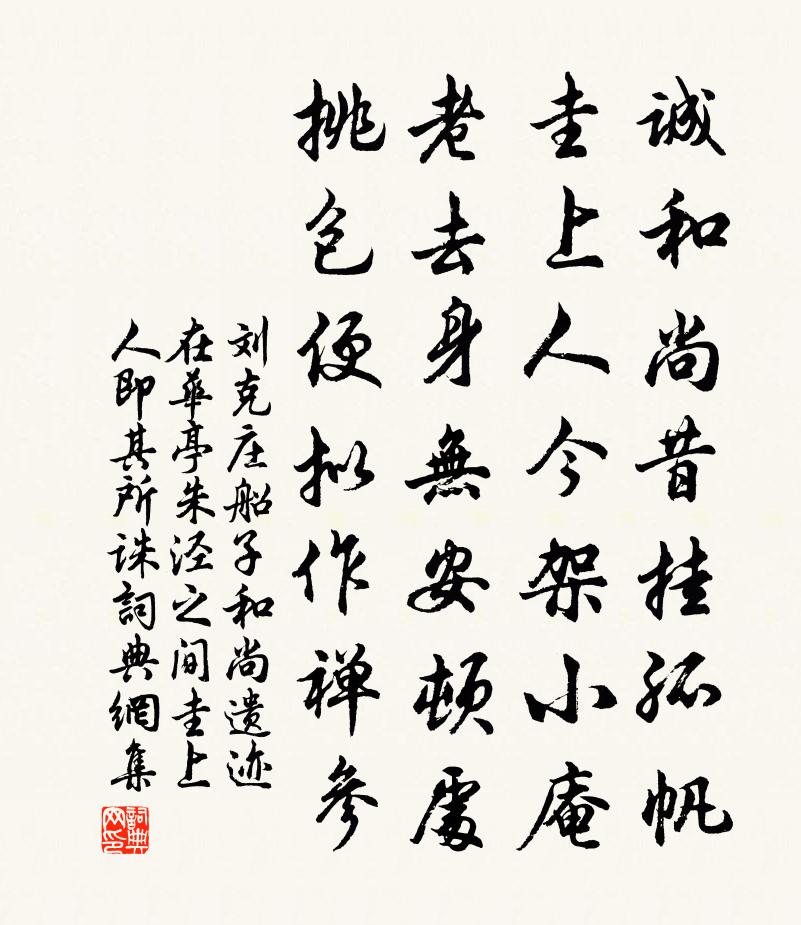 誠和尚昔挂孤帆
圭上人今架小庵
老去身無安頓處
挑包便拟作禅參
刘克庄船子和尚遗迹
在華亭朱泾之间圭上
人即其所诛詞典網集
詞典网印